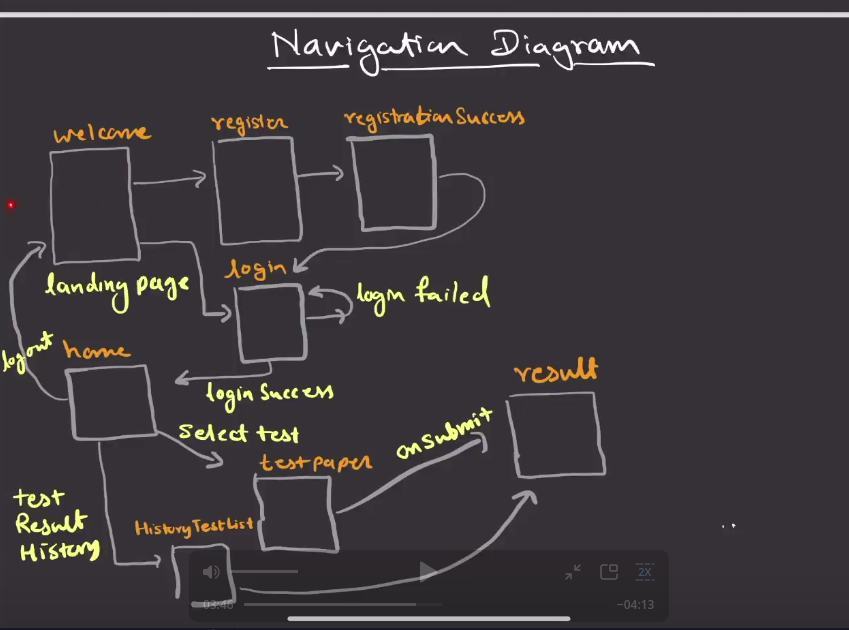 Navigation Diagram
welcome
register
registrationSuccess
landing page
login
login failed
logout
home
login Success
result
Select test
onsubmit
testpaper
test
Result
History
HistoryTestList
2X
03:46
−04:13